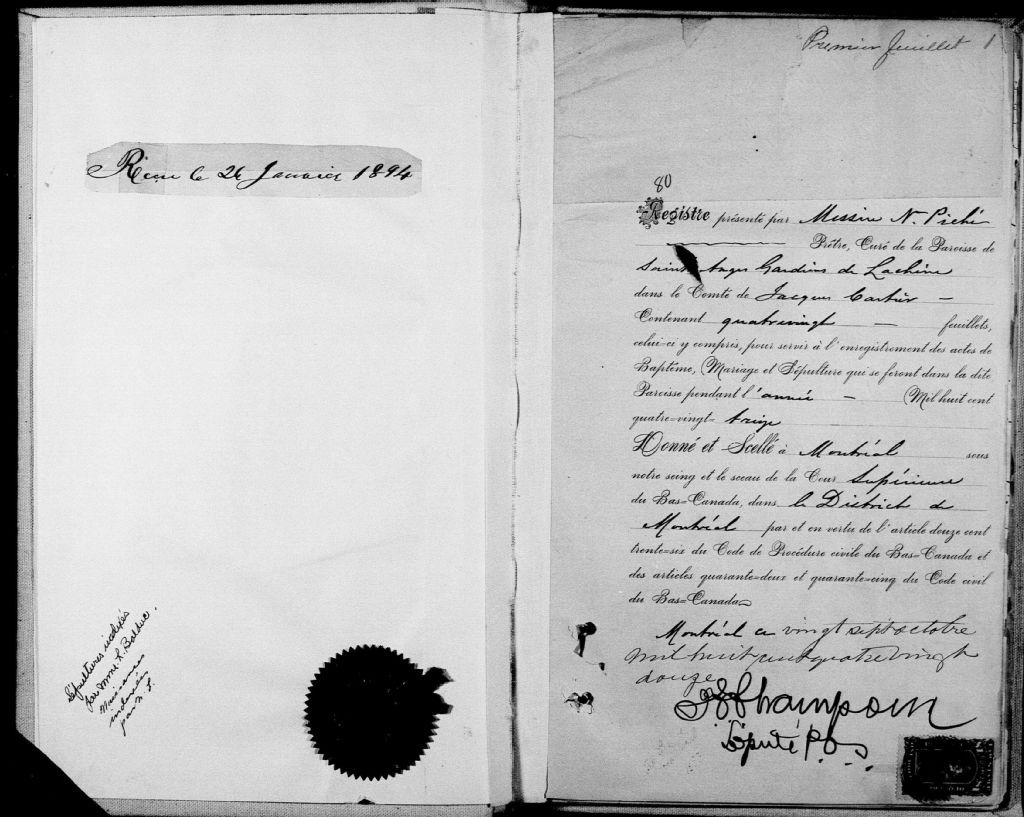 Reçu le 26 Janvier 1894
Sépultures indexées
par Mme L. Bolduc.
Naissances
indexées
par
Premier feuillet 1
80
Registre présenté par Messire N. Piché
Prêtre, Curé de la Paroisse de
Saints Anges Gardiens de Lachine
dans le Comté de Jacques Cartier –
Contenant quatrevingt – feuillets,
celui-ci y compris, pour servir à l'enregistrement des actes de
Baptême, Mariage et Sépulture qui se feront dans la dite
Paroisse pendant l'année – Mil huit cent
quatre=vingt= treize
Donné et Scellé à Montréal sous
notre seing et le sceau de la Cour Supérieure
du Bas=Canada, dans le District de
Montréal par et en vertu de l'article douze cent
trente=six du Code de Procédure civile du Bas=Canada et
des articles quarante=deux et quarante=cinq du Code civil
du Bas=Canada
Montréal ce vingt sept octobre
mil huit cent quatre vingt
douze
Député P.